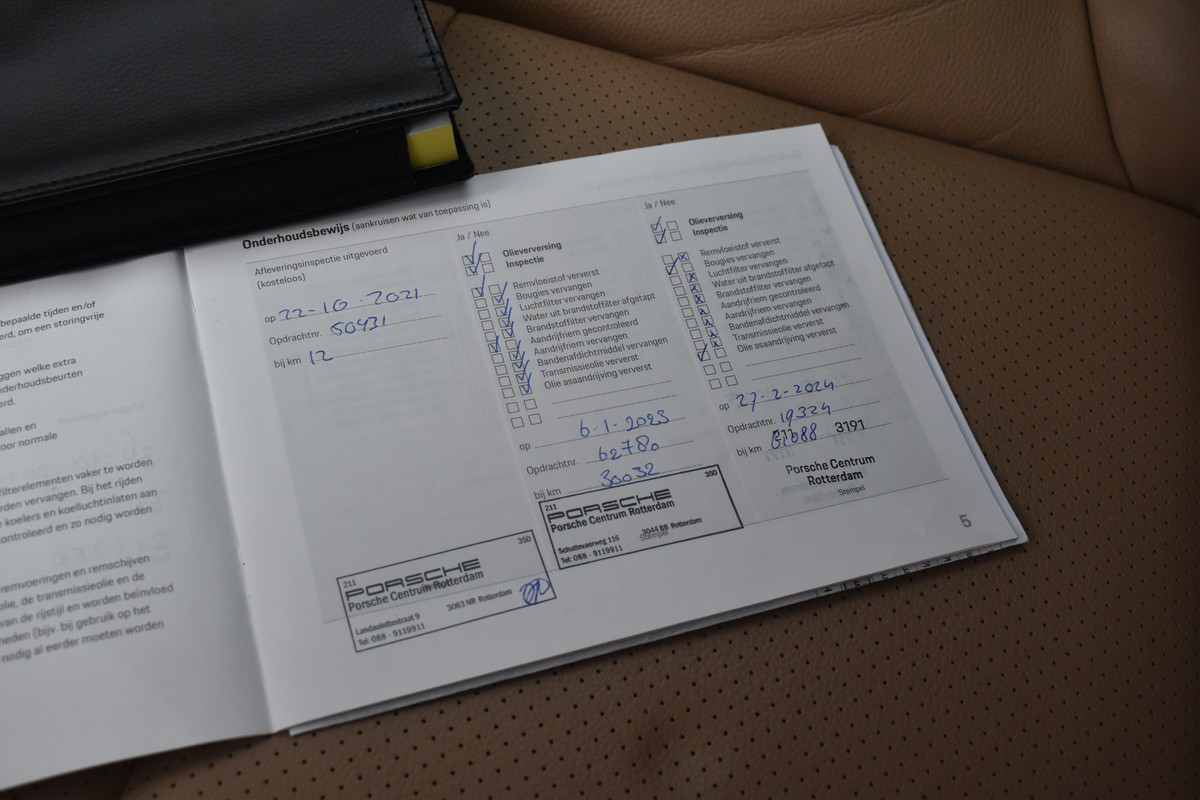 bepaalde tijden en/of
erd, om een storingvrije
ggen welke extra
nderhoudsbeurten
erd.
allen en
oor normale
filterelementen vaker te worden
rden vervangen. Bij het rijden
e koelers en koelluchtinlaten aan
controleerd en zo nodig worden
remvoeringen en remschijven
olie, de transmissieolie en de
van de rijstijl en worden beïnvloed
neden (bijv. bij gebruik op het
nodig al eerder moeten worden
Onderhoudsbewijs (aankruisen wat van toepassing is)
Afleveringsinspectie uitgevoerd
(kosteloos)
op 22-10-2021
Opdrachtnr. 50431
bij km 12
211 350
PORSCHE
Porsche Centrum Rotterdam
Landaulettestraat 9 3063 NR Rotterdam
Tel: 088 - 9119911
Ja / Nee
Olieverversing
Inspectie
Remvloeistof ververst
Bougies vervangen
Luchtfilter vervangen
Water uit brandstoffilter afgetapt
Brandstoffilter vervangen
Aandrijfriem gecontroleerd
Aandrijfriem vervangen
Bandenafdichtmiddel vervangen
Transmissieolie ververst
Olie asaandrijving ververst
op 6-1-2023
Opdrachtnr. 62780
bij km 30032
211 350
PORSCHE
Porsche Centrum Rotterdam
Schuttevaerweg 116 3044 BB Rotterdam
Stempel
Tel: 088 - 9119911
Ja / Nee
Olieverversing
Inspectie
Remvloeistof ververst
Bougies vervangen
Luchtfilter vervangen
Water uit brandstoffilter afgetapt
Brandstoffilter vervangen
Aandrijfriem gecontroleerd
Aandrijfriem vervangen
Bandenafdichtmiddel vervangen
Transmissieolie ververst
Olie asaandrijving ververst
op 27-2-2024
Opdrachtnr. 19324
bij km 61088 211 3191
Porsche Centrum
Rotterdam
Stempel
5